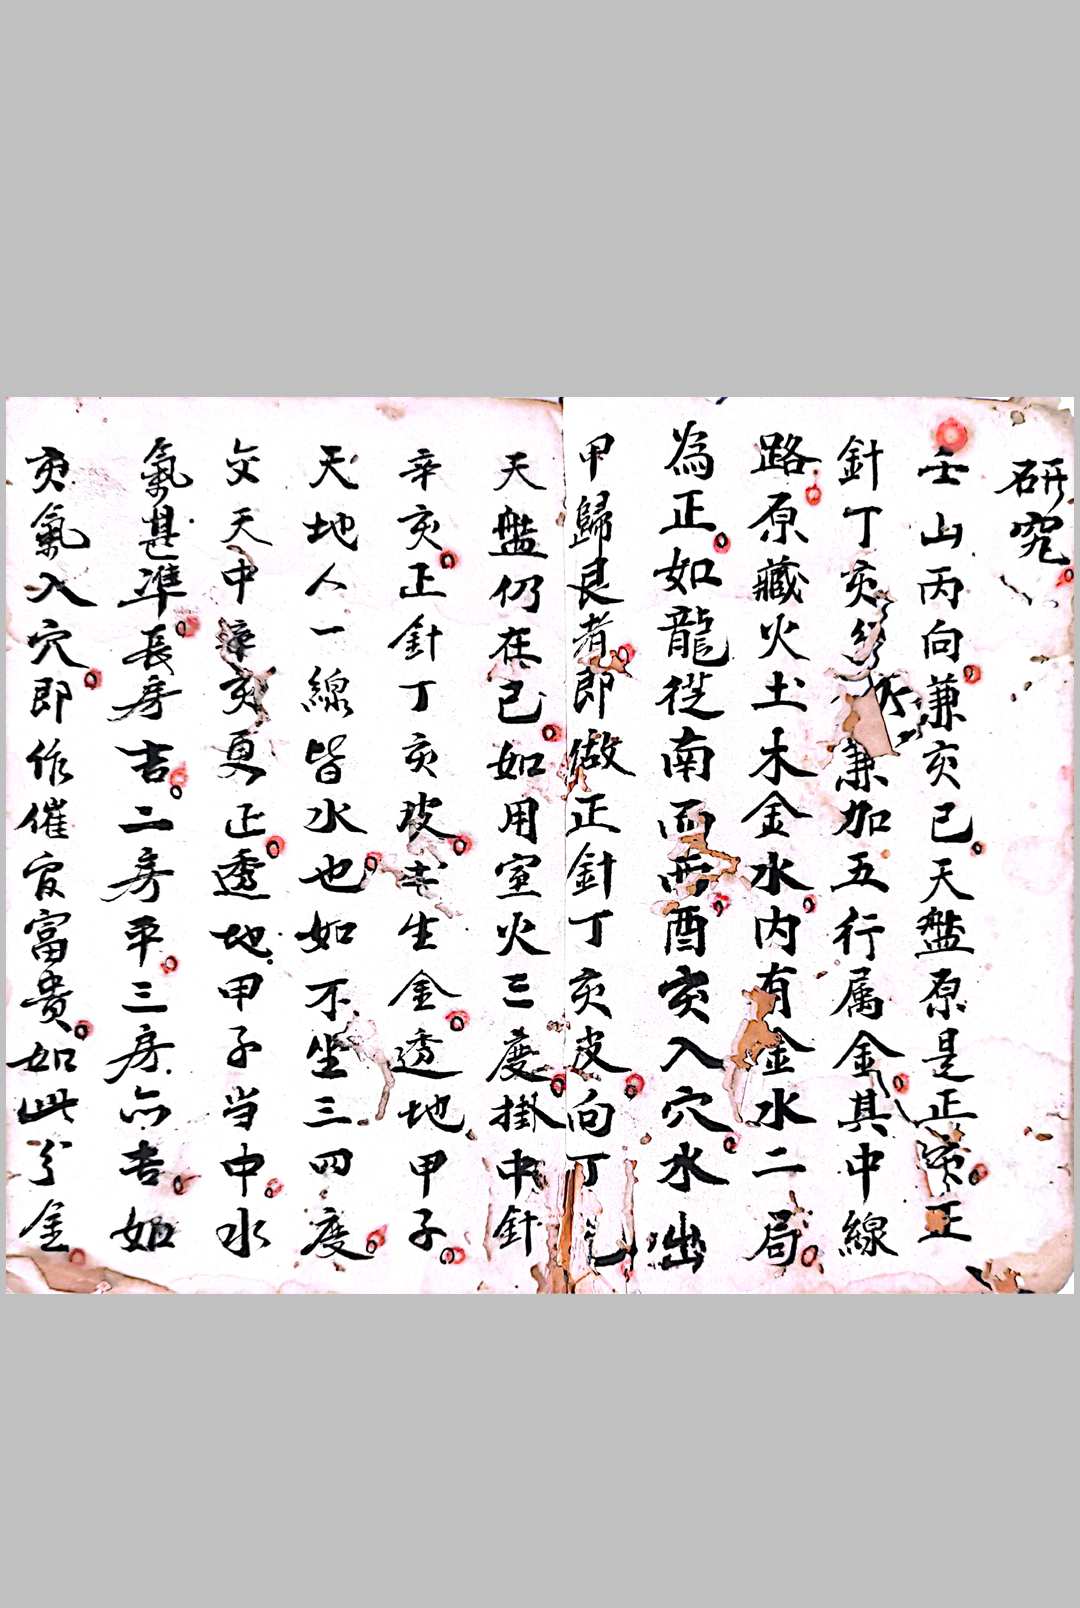 研究
壬山丙向兼亥己天盤原是正正
針丁亥兼加五行属金其中線
路原藏火土木金水内有金水二局
為正如龍從南而酉亥入穴水出
甲歸艮者即做正針丁亥皮向丁
天盤仍在己如用室火三度掛中針
辛亥正針丁亥皮去生金透地甲子
天地人一線皆水也如不坐三四度
交天中亥更正透地甲子当中水
氣甚準長房吉二房平三房亦吉如
亥氣入穴即作催官富貴如此分金